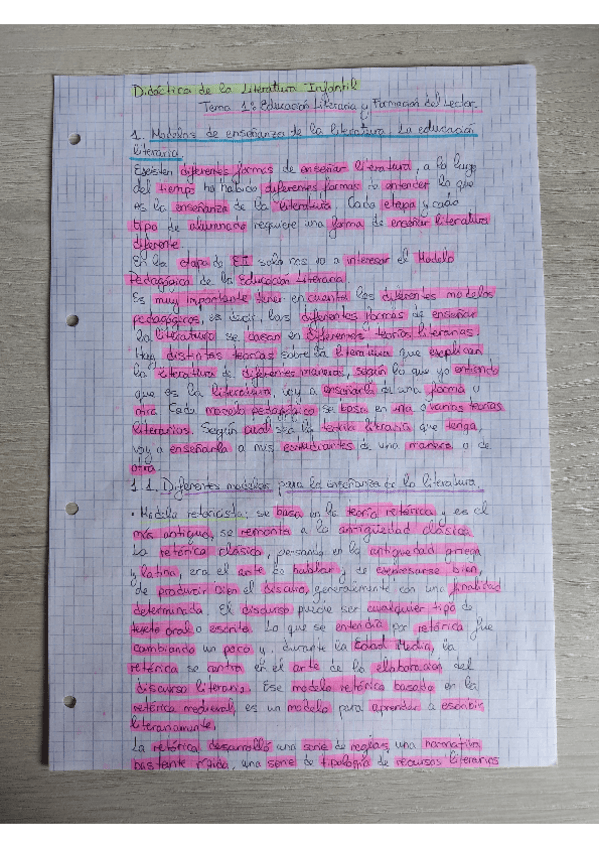 Didáctica de la Literatura Infantil
Tema 1: Educación Literaria y Formación del Lector.
1. Modelos de enseñanza de la literatura. La educación
literaria.
Existen diferentes formas de enseñar literatura, a lo largo
del tiempo ha habido diferentes formas de entender lo que
es la enseñanza de la literatura. Cada etapa y cada
tipo de alumnado requiere una forma de enseñar literatura
diferente.
En la etapa de EI solo nos va a interesar el Modelo
Pedagógico de la Educación Literaria.
Es muy importante tener en cuenta los diferentes modelos
pedagógicos, es decir, las diferentes formas de enseñar
la literatura se basan en diferentes teorías literarias.
Hay distintas teorías sobre la literatura que explican
la literatura de diferentes maneras, según lo que yo entiendo
que es la literatura, voy a enseñarla de una forma u
otra. Cada modelo pedagógico se basa en una o varias teorías
literarias. Según cual sea la teoría literaria que tenga,
voy a enseñarla a mis estudiantes de una manera o de
otra.
1.1. Diferentes modelos para la enseñanza de la literatura.
• Modelo retoricista: se basa en la teoría retórica y es el
más antiguo, se remonta a la antigüedad clásica.
La retórica clásica, pensando en la antigüedad griega
y latina, era el arte de hablar y de expresarse bien,
de producir bien el discurso, generalmente con una finalidad
determinada. El discurso puede ser cualquier tipo de
texto oral o escrito. Lo que se entendía por retórica fue
cambiando un poco y, durante la Edad Media, la
retórica se centra en el arte de la elaboración del
discurso literario. Ese modelo retórico basado en la
retórica medieval, es un modelo para aprender a escribir
literariamente.
La retórica desarrolló una serie de reglas, una normativa
bastante rígida, una serie de tipología de recursos literarios